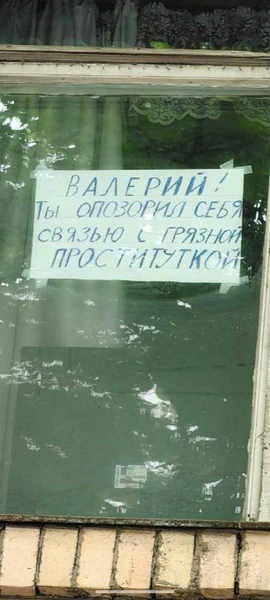 ВАЛЕРИЙ!
ТЫ ОПОЗОРИЛ СЕБЯ
СВЯЗЬЮ С ГРЯЗНОЙ
ПРОСТИТУТКОЙ